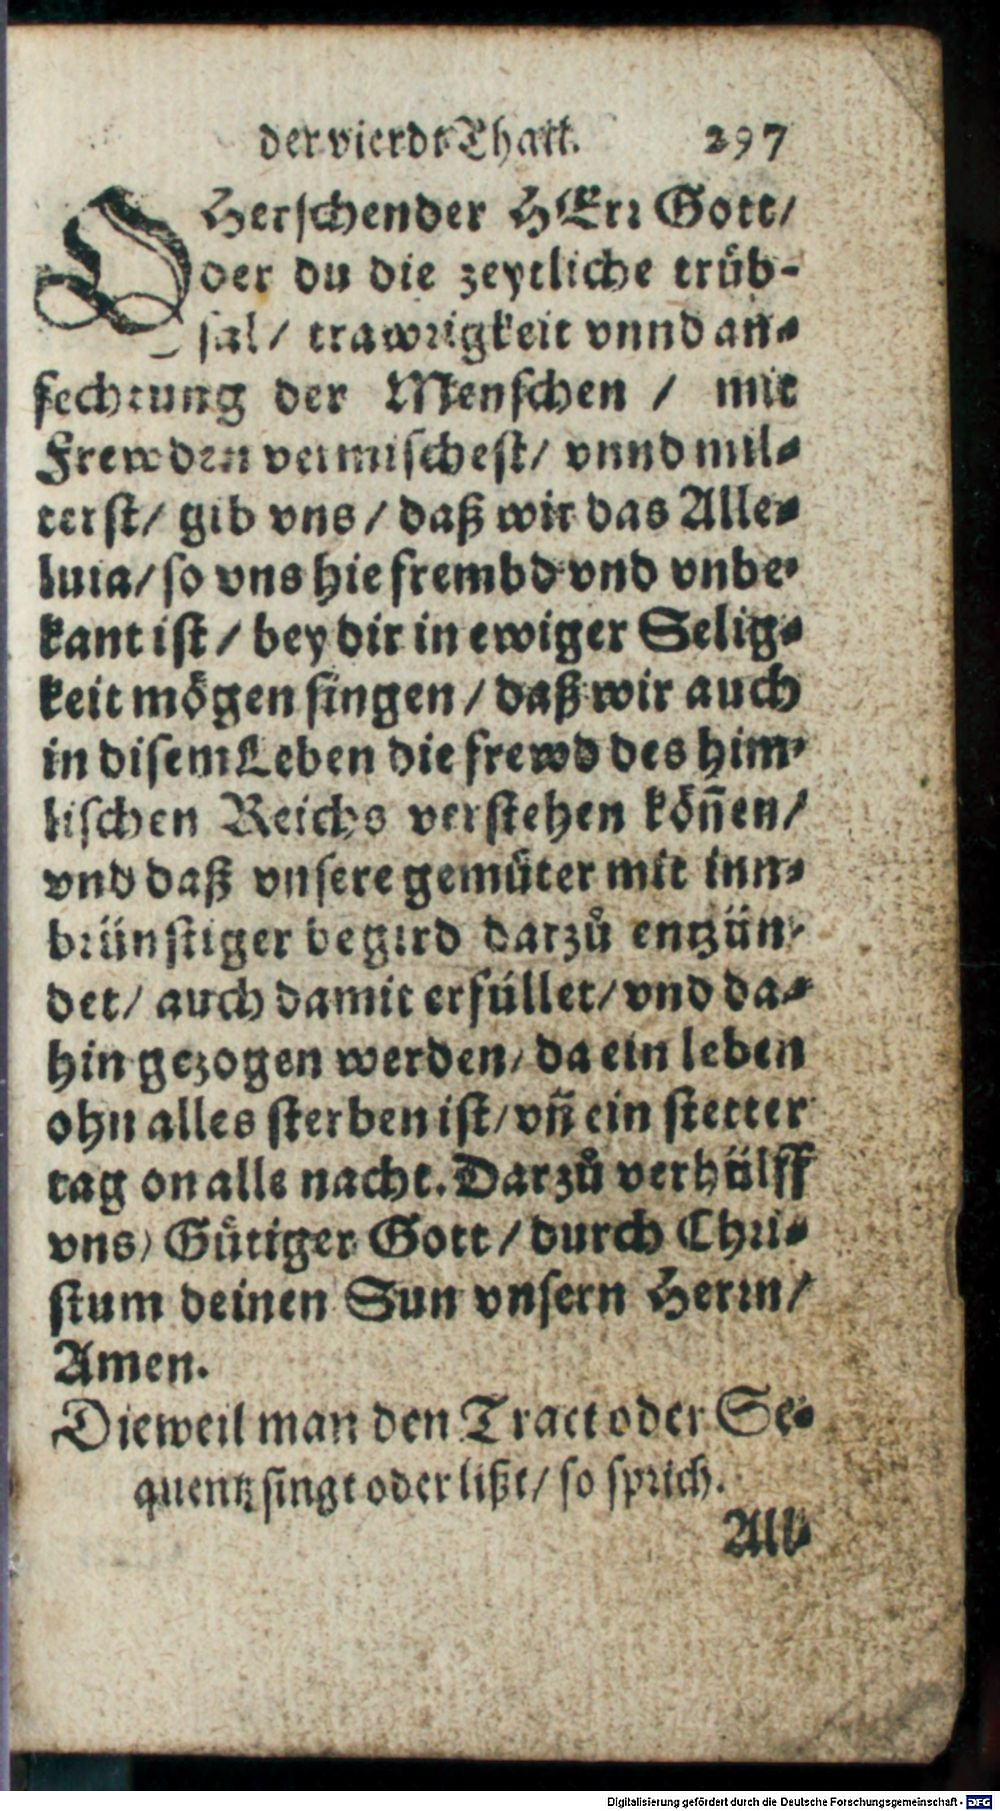 der vierdt Thail. 297
O Herschender HErr Gott/
der du die zeytliche trüb-
sal/ trawrigkeit vnnd an-
fechtung der Menschen / mit
Frewden vermischest/ vnnd mil-
terst/ gib vns / daß wir das Alle-
luia/ so vns hie frembd vnd vnbe-
kant ist / bey dir in ewiger Selig-
keit mögen singen / daß wir auch
in disem Leben die frewd des him-
lischen Reichs verstehen köñen/
vnd daß vnsere gemüter mit inn-
brünstiger begird darzů entzün-
det/ auch damit erfüllet/ vnd da-
hin gezogen werden/ da ein leben
ohn alles sterben ist/ vñ ein stetter
tag on alle nacht. Darzů verhülff
vns) Gütiger Gott / durch Chri-
stum deinen Sun vnsern Herrn/
Amen.
Dieweil man den Tract oder Se-
quentz singt oder lißt/ so sprich.
All-
Digitalisierung gefördert durch die Deutsche Forschungsgemeinschaft - DFG